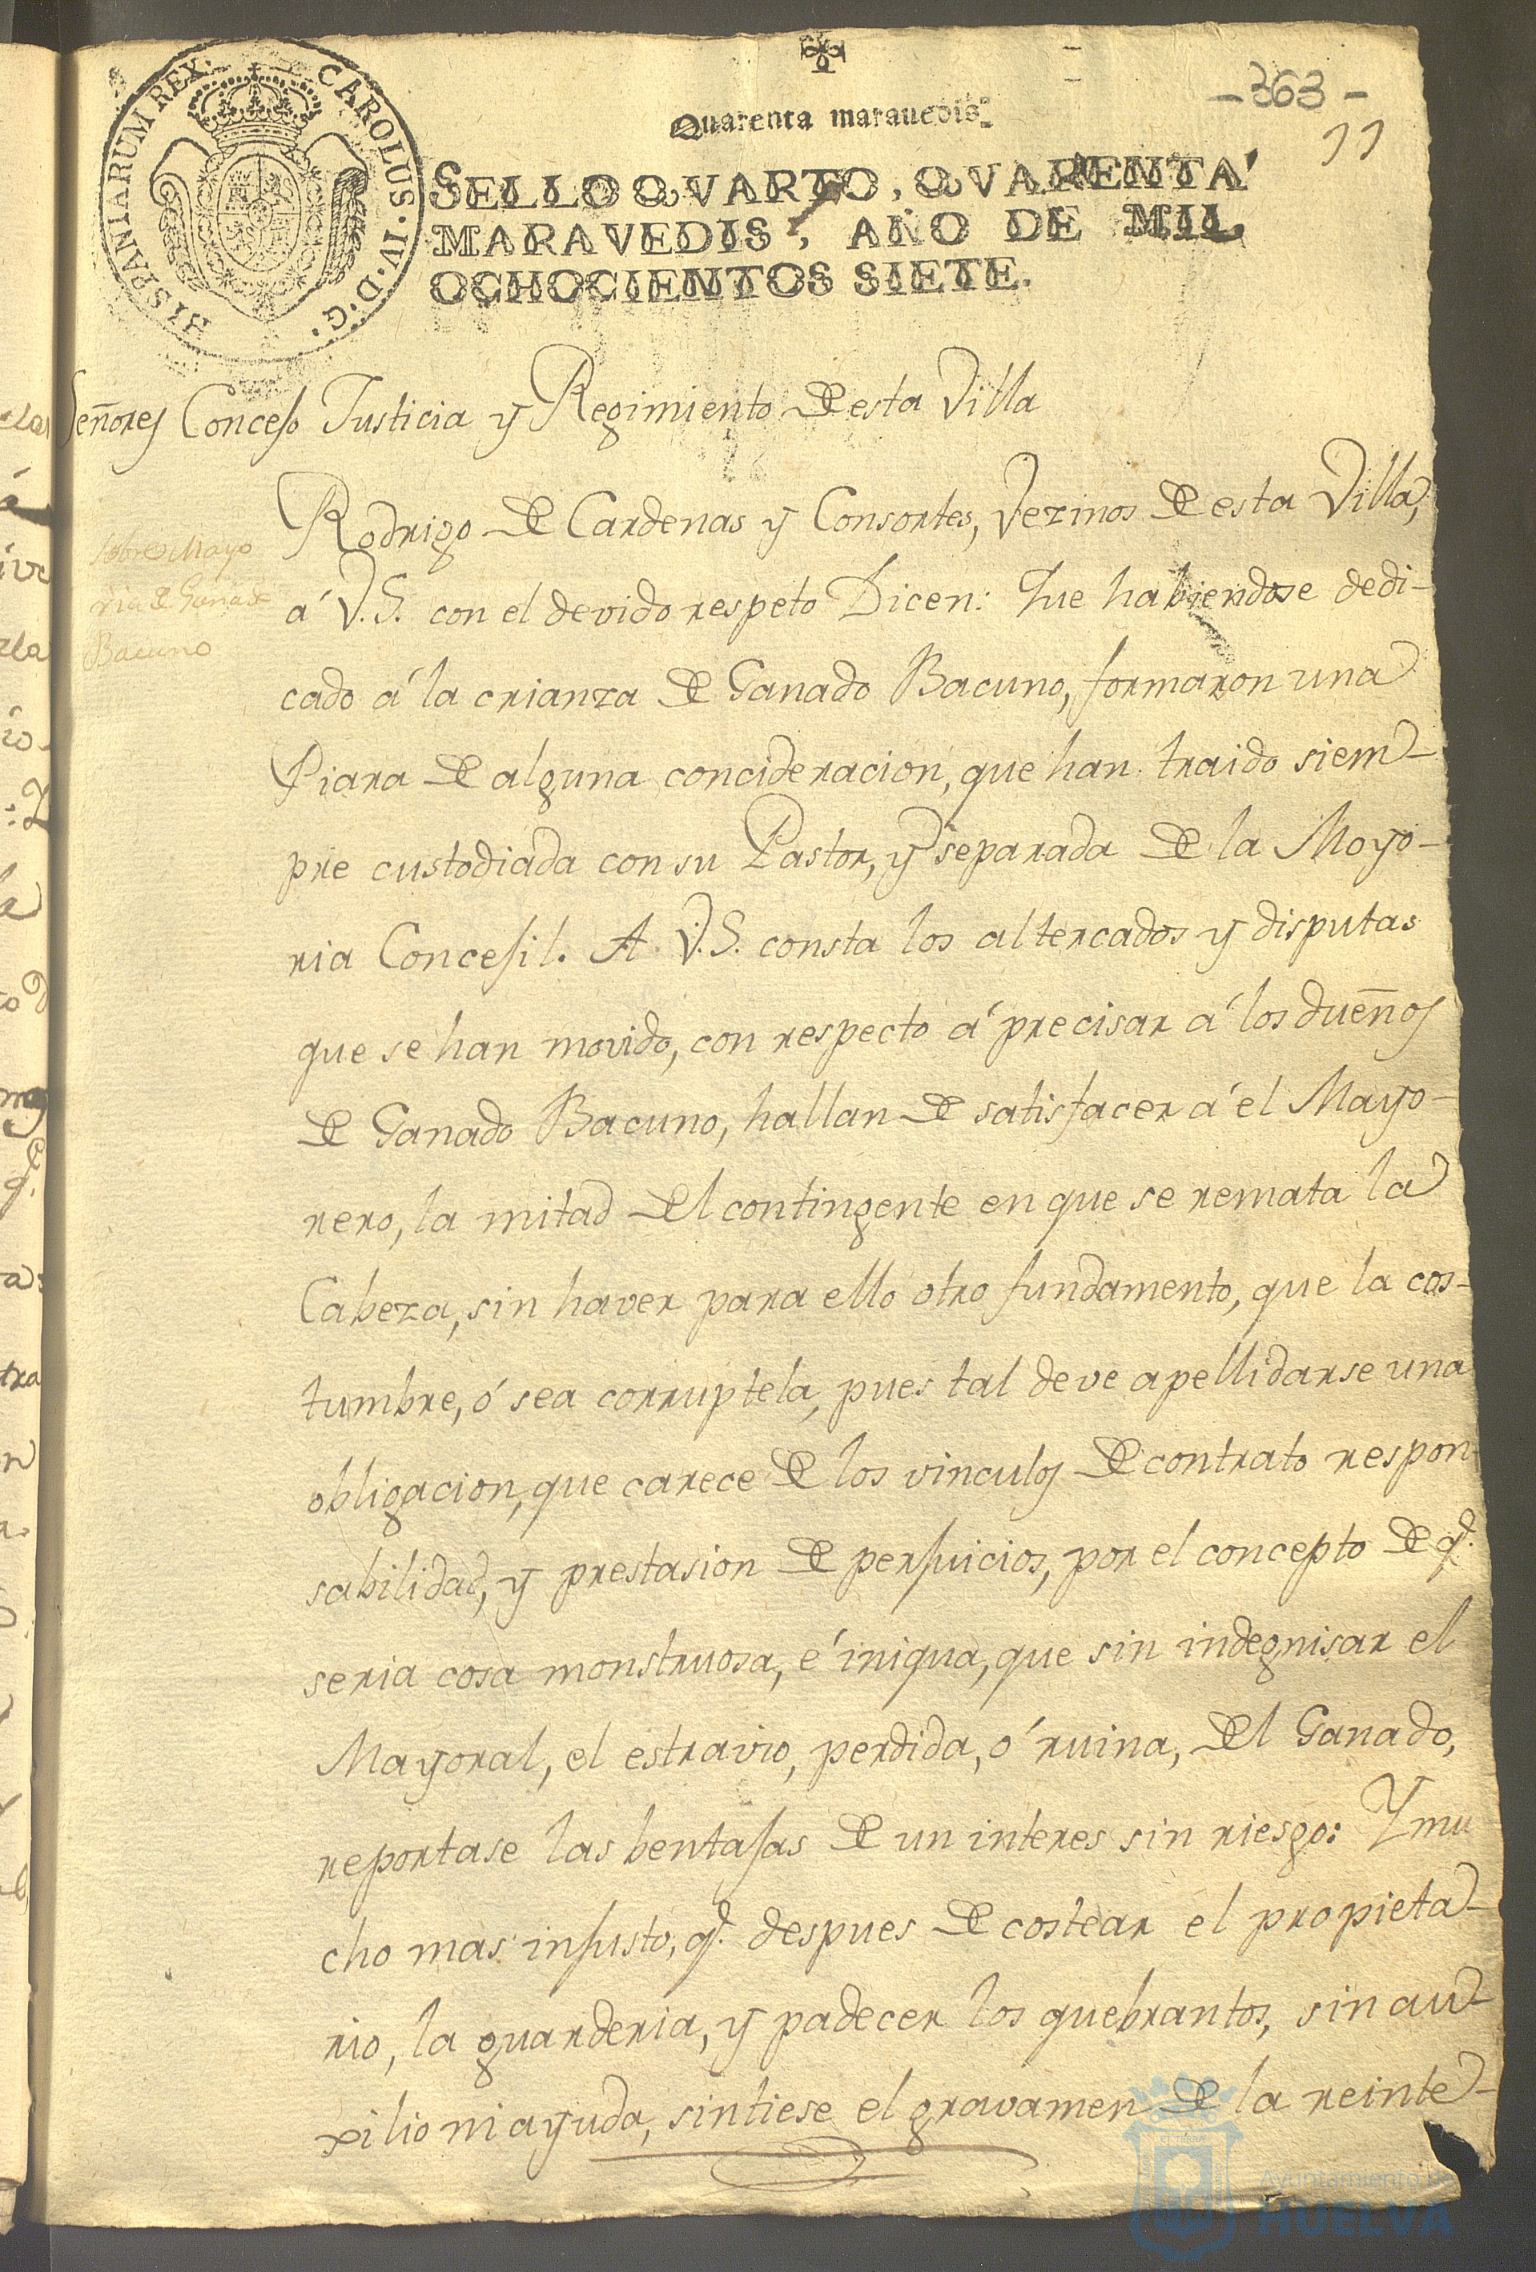 -363-
11
Quarenta maravedis.
HISPANIARUM REX. CAROLUS. IV. D. G.
SELLO QVARTO, QVARENTA
MARAVEDIS, AÑO DE MIL
OCHOCIENTOS SIETE.
Señores Concejo Justicia y Regimiento de esta Villa
Sobre Mayo
ria de Ganado
Bacuno
Rodrigo de Cardenas y Consortes, Vezinos de esta Villa,
á V.S. con el devido respeto Dicen: Que habiendose dedi-
cado á la crianza de Ganado Bacuno, formaron una
Piara de alguna concideracion, que han traido siem-
pre custodiada con su Pastor, y separada de la Moyo-
ria Concejil. A V.S. consta los altercados y disputas
que se han movido, con respecto á precisar á los dueños
de Ganado Bacuno, hallan de satisfacer á el Mayo-
rero, la mitad del contingente en que se remata la
Cabeza, sin haver para ello otro fundamento, que la cos-
tumbre, ó sea corruptela, pues tal deve apellidarse una
obligacion, que carece de los vinculos de contrato respon-
sabilidad, y prestasion de perjuicios, por el concepto de q.e
seria cosa monstruosa, é iniqua, que sin indegnisar el
Mayoral, el estravio, perdida, ó ruina, del Ganado,
reportase las bentajas de un interes sin riesgo: Y mu
cho mas injusto, q.e despues de costear el propieta-
rio, la guarderia, y padecer los quebrantos, sin au-
xilio ni ayuda, sintiese el gravamen de la reinte-
Ayuntamiento de
HUELVA